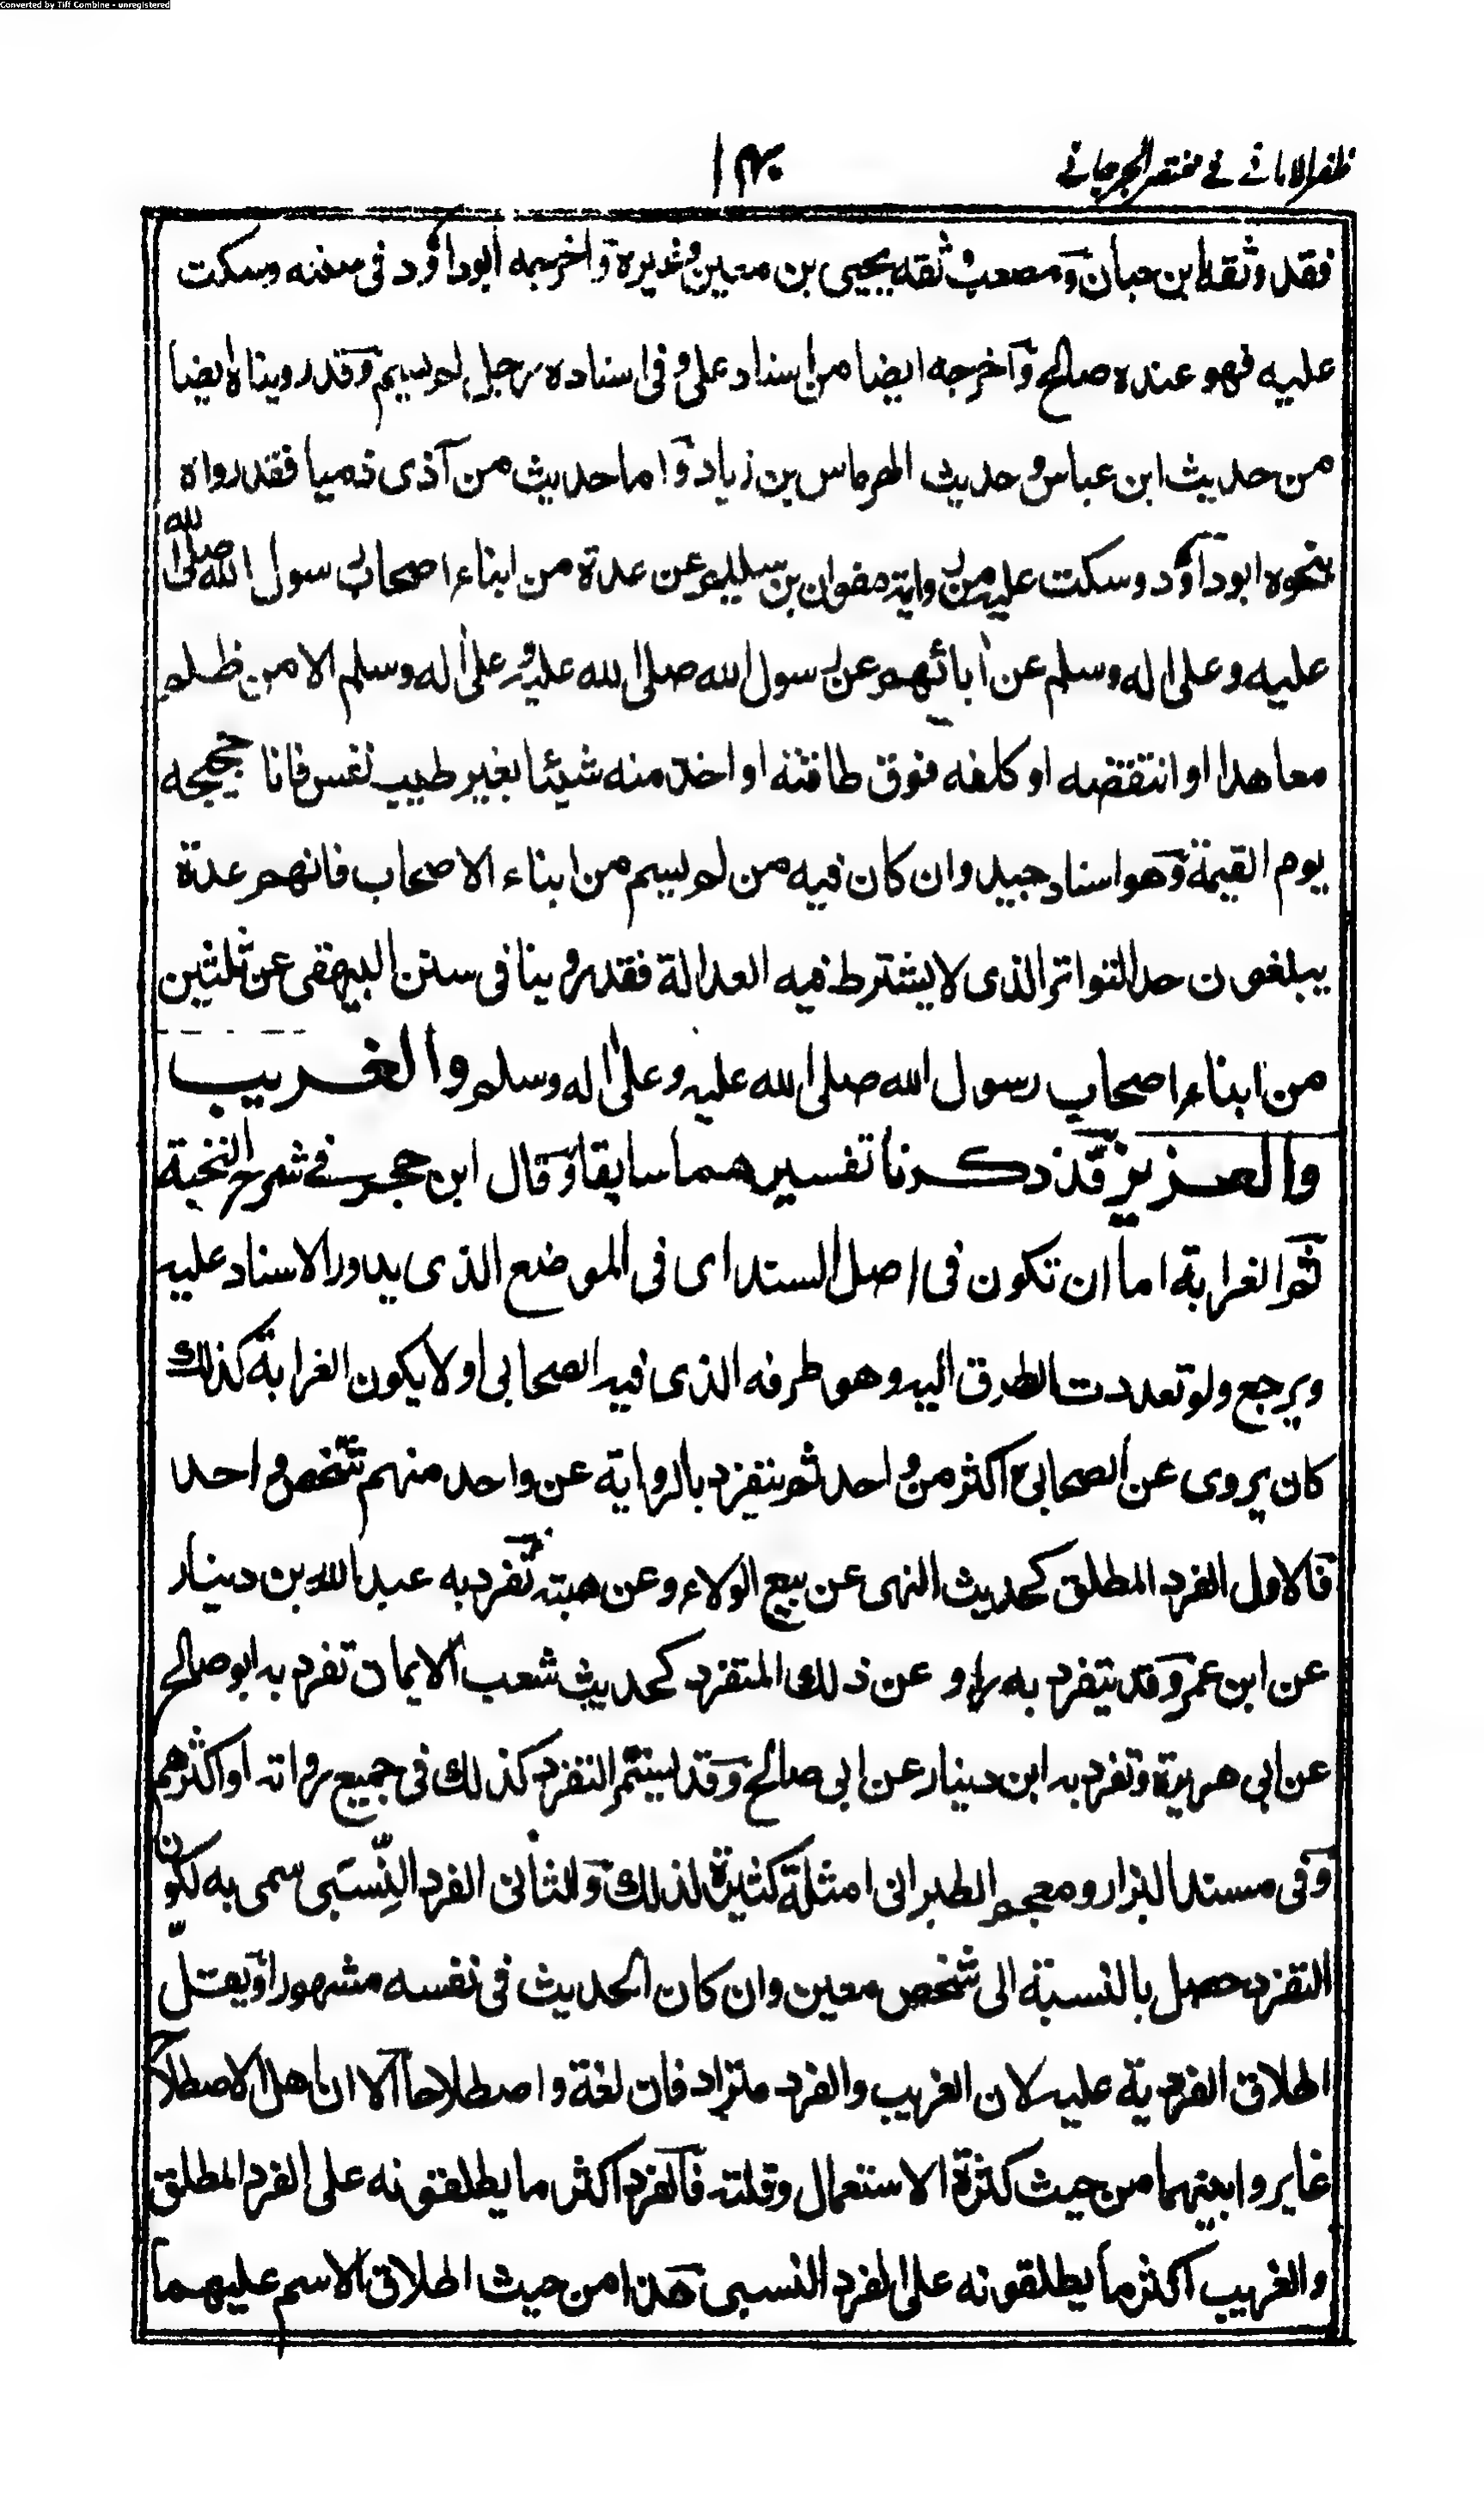 Converted by Tiff Combine - unregistered
ظفر الامانی فی مختصر الجرجانی
۱۴۰
فقد وثقه ابن حبان و مصعب وثقه يحيى بن معين وغيره و اخرجه ابوداؤد فى سننه وسكت
عليه فهو عنده صالح و اخرجه ايضا من اسناد على وفى اسناده رجل لم يسم وقد رويناه ايضا
من حديث ابن عباس وحديث الهرماس بن زياد و اما حديث من آذى ذميا فقد رواه
بنحوه ابوداؤد وسكت عليه من رواية صفوان بن سليم عن عدة من ابناء اصحاب رسول الله صلى الله
عليه وعلى اله وسلم عن ابائهم عن رسول الله صلى الله عليه وعلى اله وسلم الا من ظلم
معاهدا او انتقضه او كلفه فوق طاقته او اخذ منه شيئا بغير طيب نفس فانا حجيجه
يوم القيمة وهو اسناد جيد وان كان فيه من لم يسم من ابناء الاصحاب فانهم عدة
يبلغون حد التواتر الذى لا يشترط فيه العدالة فقد روينا فى سنن البيهقى عن ثلثين
من ابناء اصحاب رسول الله صلى الله عليه وعلى اله وسلم والغريب
والعزيز قد ذكرنا تفسيرهما سابقا وقال ابن حجر فى شرح النخبة
ثم الغرابة اما ان تكون فى اصل السند اى فى الموضع الذى يدور الاسناد عليه
ويرجع ولو تعددت الطرق اليه وهو طرفه الذى فيه الصحابى او لا يكون الغرابة كذلك
كان يروى عن الصحابى اكثر من واحد ثم يتفرد بالرواية عن واحد منهم شخص واحد
فالاول الفرد المطلق كحديث النهى عن بيع الولاء وعن هبته تفرد به عبد الله بن دينار
عن ابن عمر وقد يتفرد به راو عن ذلك المتفرد كحديث شعب الايمان تفرد به ابو صالح
عن ابى هريرة وتفرد به ابن دينار عن ابى صالح وقد يستمر التفرد كذلك فى جميع رواته او اكثرهم
وفى مسند البزار ومعجم الطبرانى امثلة كثيرة لذلك والثانى الفرد النِّسبَى سمى به لكون
التفرد حصل بالنسبة الى شخص معين وان كان الحديث فى نفسه مشهورا ويقلّ
اطلاق الفردية عليه لان الغريب والفرد مترادفان لغة واصطلاحا الا ان اهل الاصطلاح
غايروا بينهما من حيث كثرة الاستعمال وقلته فالفرد اكثر ما يطلقونه على الفرد المطلق
والغريب اكثر ما يطلقونه على الفرد النسبى هذا من حيث اطلاق الاسم عليهما